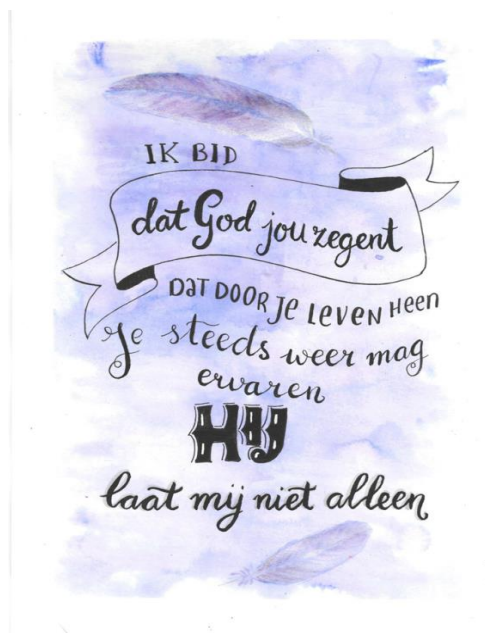 IK BID
dat God jou zegent
DAT DOOR Je LeVeN Heen
Je steeds weer mag
ervaren
HIJ
laat mij niet alleen